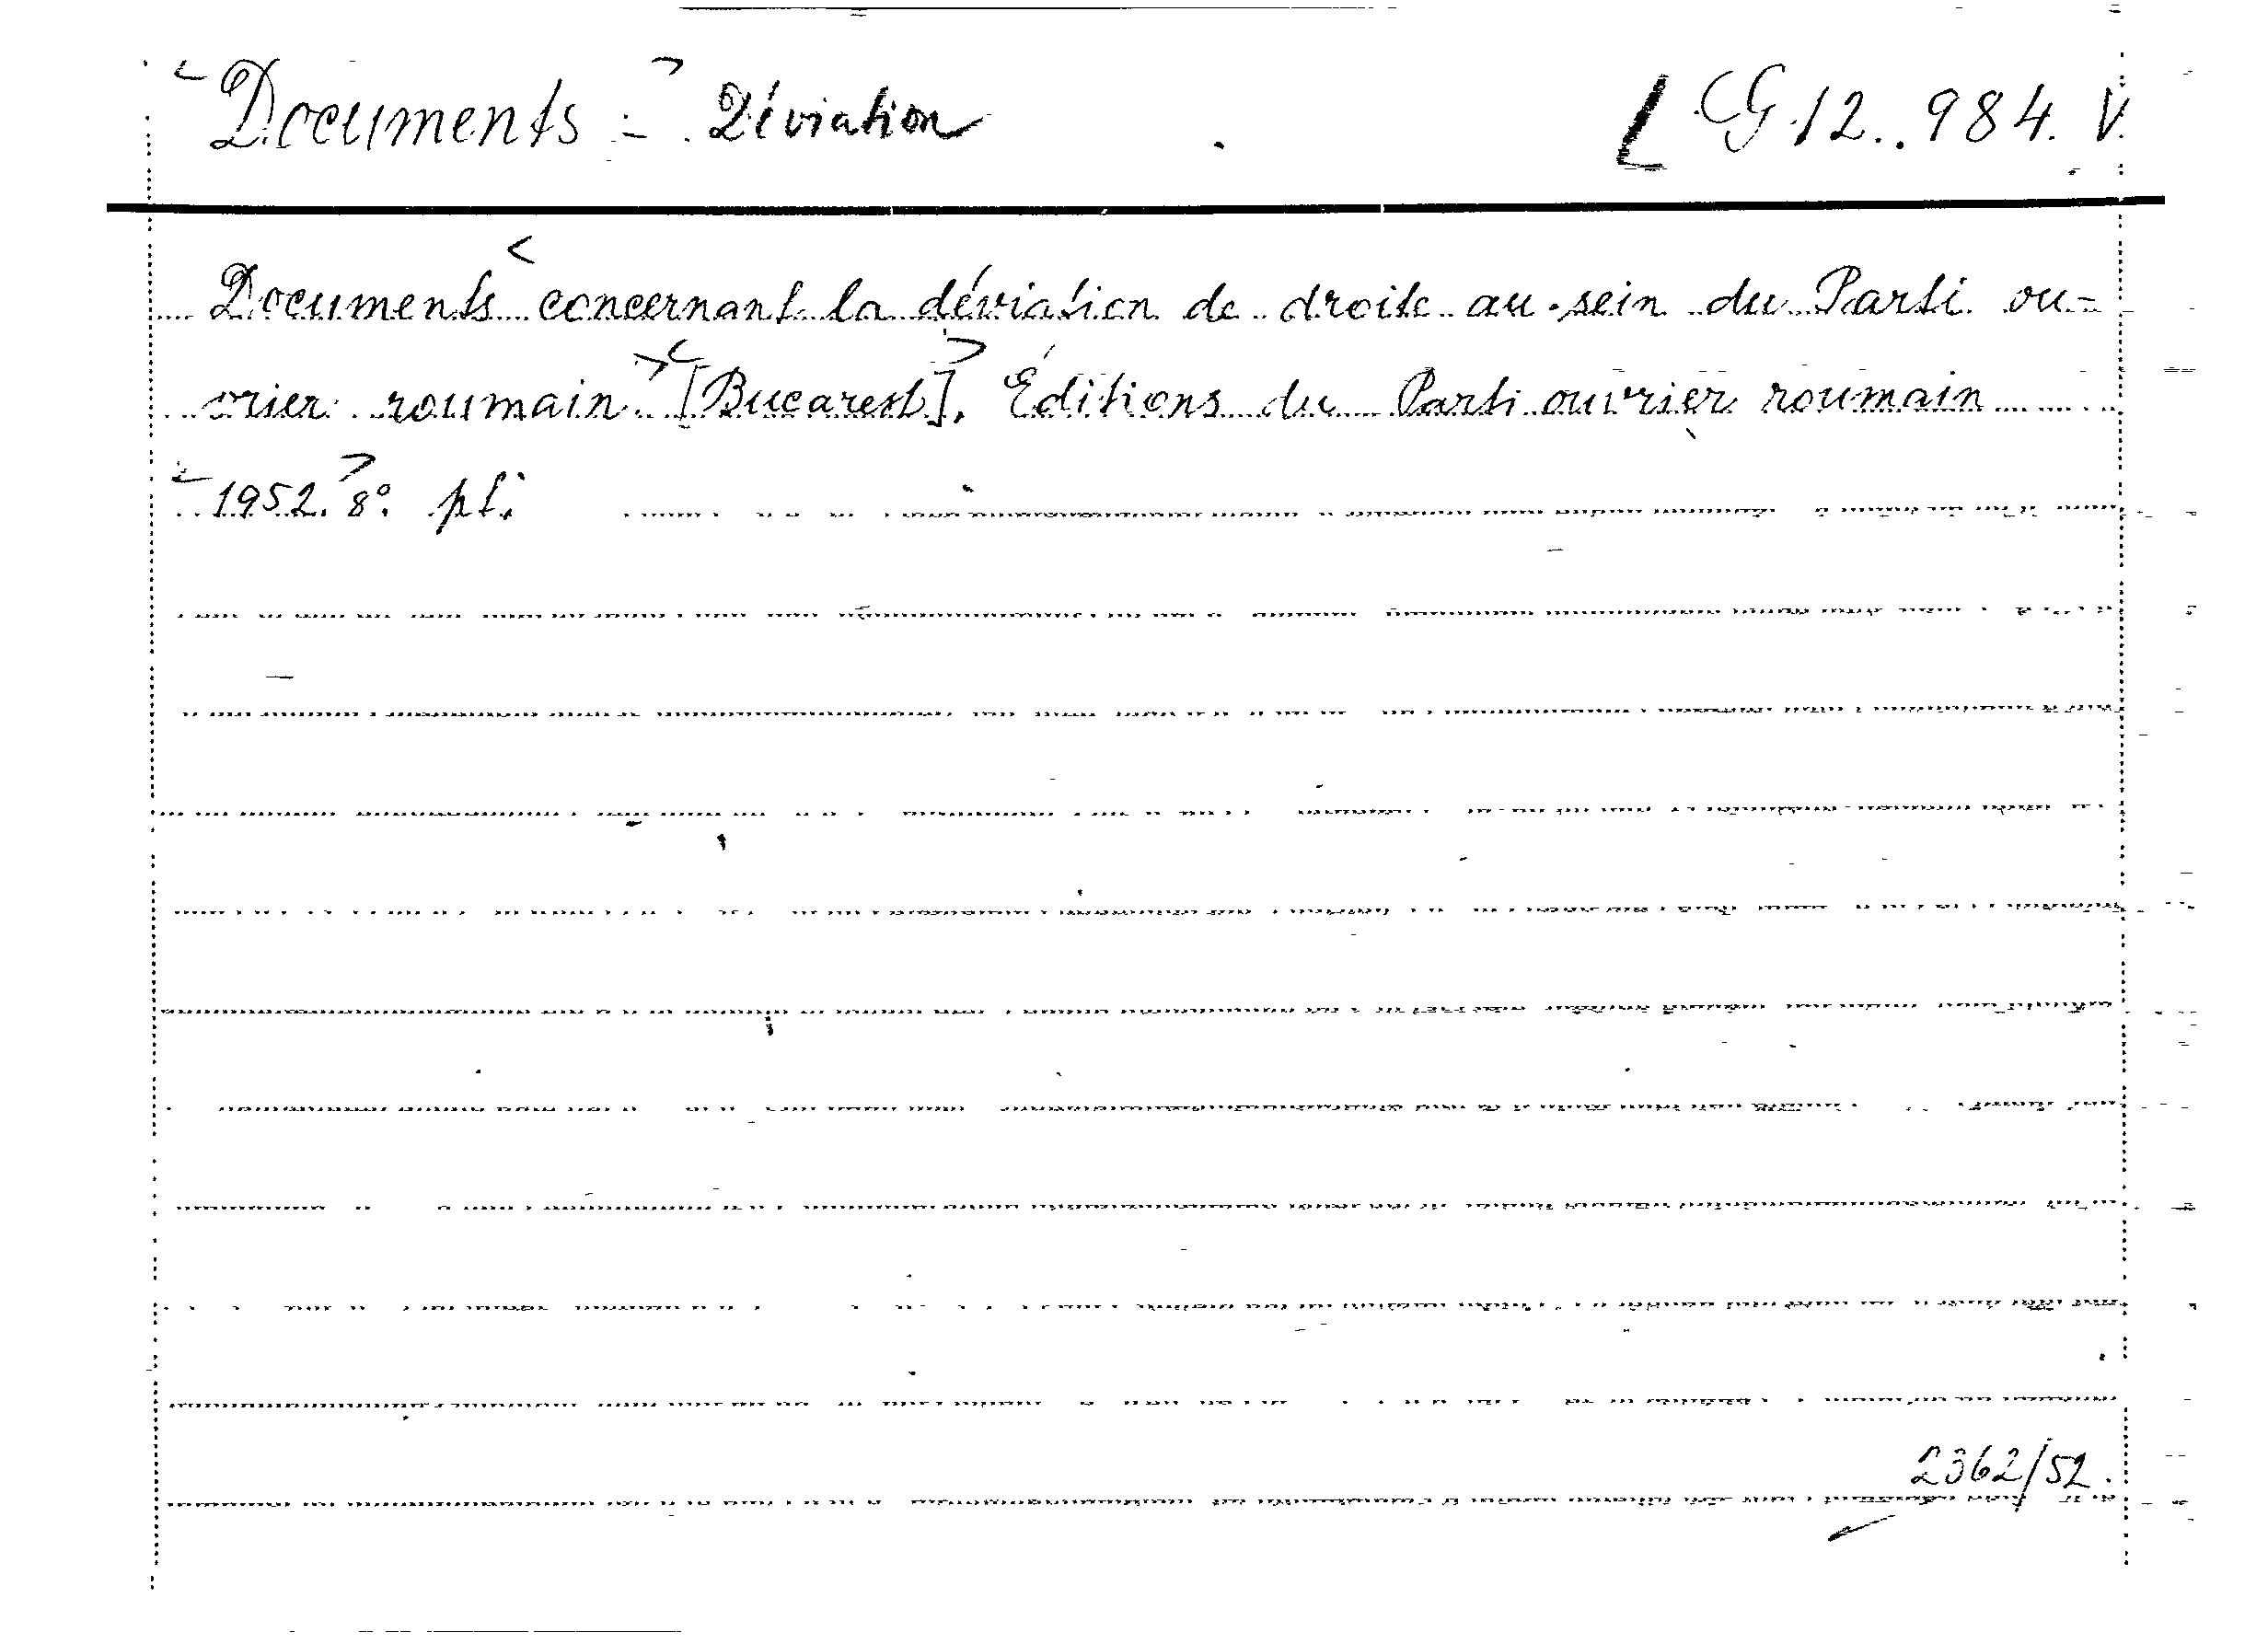 Documents = Déviation
[CG 12..984. V.
Documents concernant la déviation de droite au sein du Parti ou=
vrier roumain [Bucarest]. Éditions du Parti ouvrier roumain
1952. 8°. pf.
2362/52.